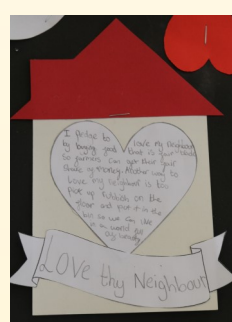 I pledge to love my neighbour
by buying goods that is fair trade
so farmers can get their fair
share of money. Another way to
love my neighbor is to
pick up rubbish on the
floor and put it in the
bin so we can live
in a world
Love thy Neighbour